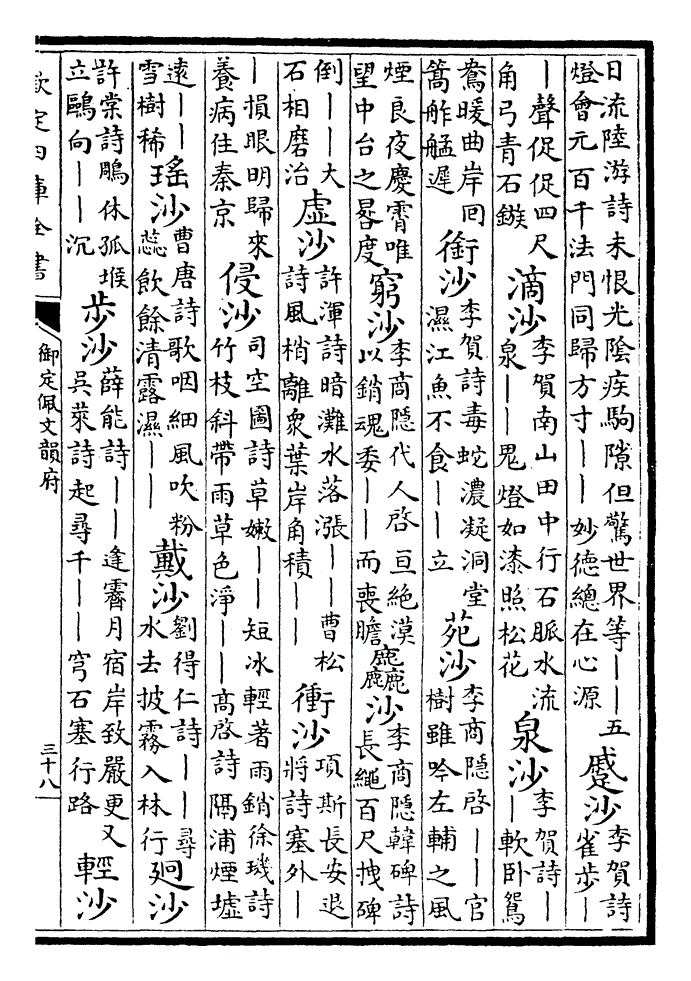 日流陸游詩未恨光陰疾駒隙但驚世界等——五燈會元百千法門同歸方寸——妙德總在心源蹙沙李賀詩雀步—
—聲促促四尺角弓青石鏃滴沙李賀南山田中行石脈水流泉——鬼燈如漆照松花泉沙李賀詩——軟卧鴛
鴦暖曲岸回篙舴艋遲銜沙李賀詩毒蛇濃凝洞堂濕江魚不食——立苑沙李商隱啓——官樹雖吟左輔之風
煙良夜慶霄唯望中台之晷度窮沙李商隱代人啓亘絶漠以銷魂委——而喪膽麤沙李商隱韓碑詩長繩百尺拽碑
倒——大石相磨治虛沙許渾詩暗灘水落漲——曹松詩風梢離衆葉岸角積——衝沙項斯長安退將詩塞外—
—損眼明歸來養病住秦京侵沙司空圖詩草嫩——短冰輕著雨銷徐璣詩竹枝斜帶雨草色淨——高啓詩隔浦煙墟
遠——雪樹稀瑶沙曹唐詩歌咽細風吹粉蕊飲餘清露濕——戴沙劉得仁詩——尋水去披霧入林行廻沙
許棠詩鵰休孤堠立鷗向——沉步沙薛能詩——逢霽月宿岸致嚴更又吳萊詩起尋千——穹石塞行路輕沙
欽定四庫全書
御定佩文韻府
三十八